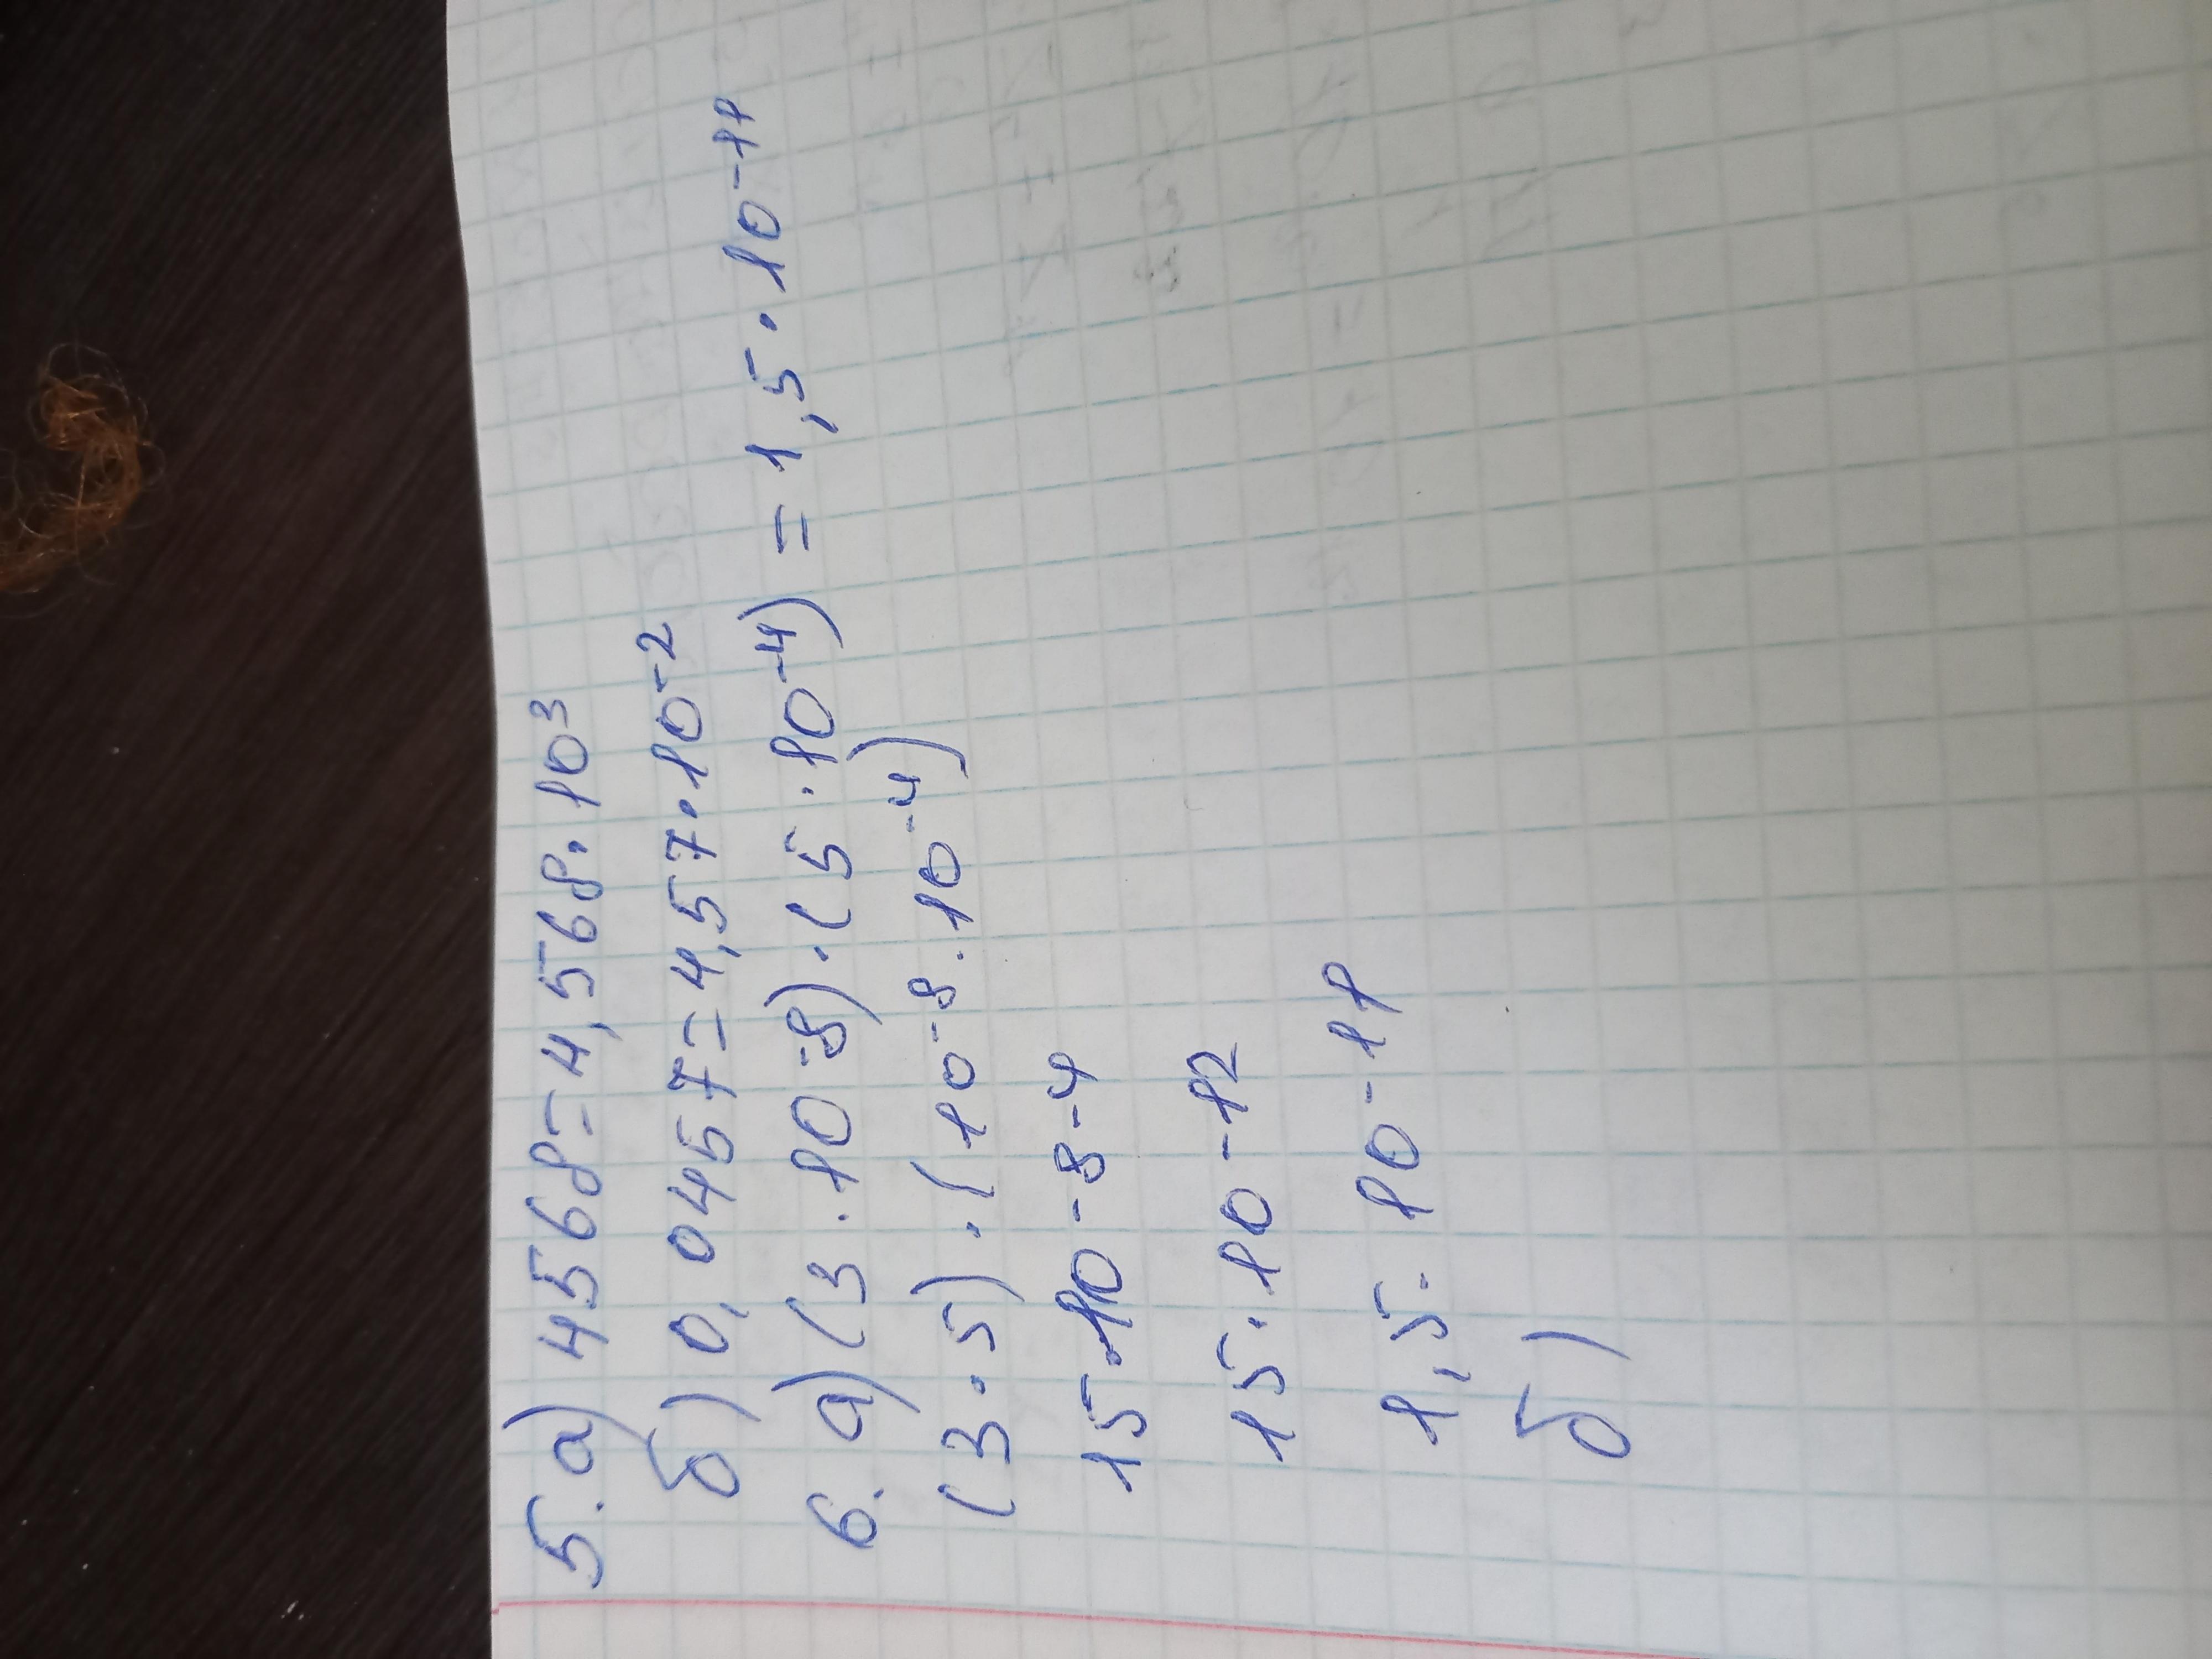 5. а) 4568=4,568·10³
б) 0,0457=4,57·10⁻²
6. а) (3·10⁻⁸)·(5·10⁻⁴) = 1,5·10⁻¹¹
(3·5)·(10⁻⁸·10⁻⁴)
15·10⁻⁸⁻⁴
15·10⁻¹²
1,5·10⁻¹¹
б)